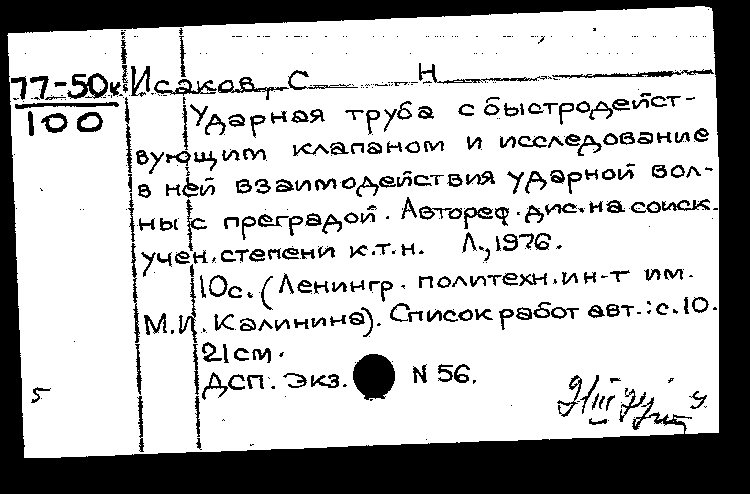 77-50к Исаков, С Н
100
Ударная труба с быстродейст-
вующим клапаном и исследование
в ней взаимодействия ударной вол-
ны с преградой. Автореф. дис. на соиск.
учен. степени к.т.н. Л., 1976.
10с. (Ленингр. политехн. ин-т им.
М.И. Калинина). Список работ авт.: с. 10.
21см.
ДСП. Экз. N 56.
5